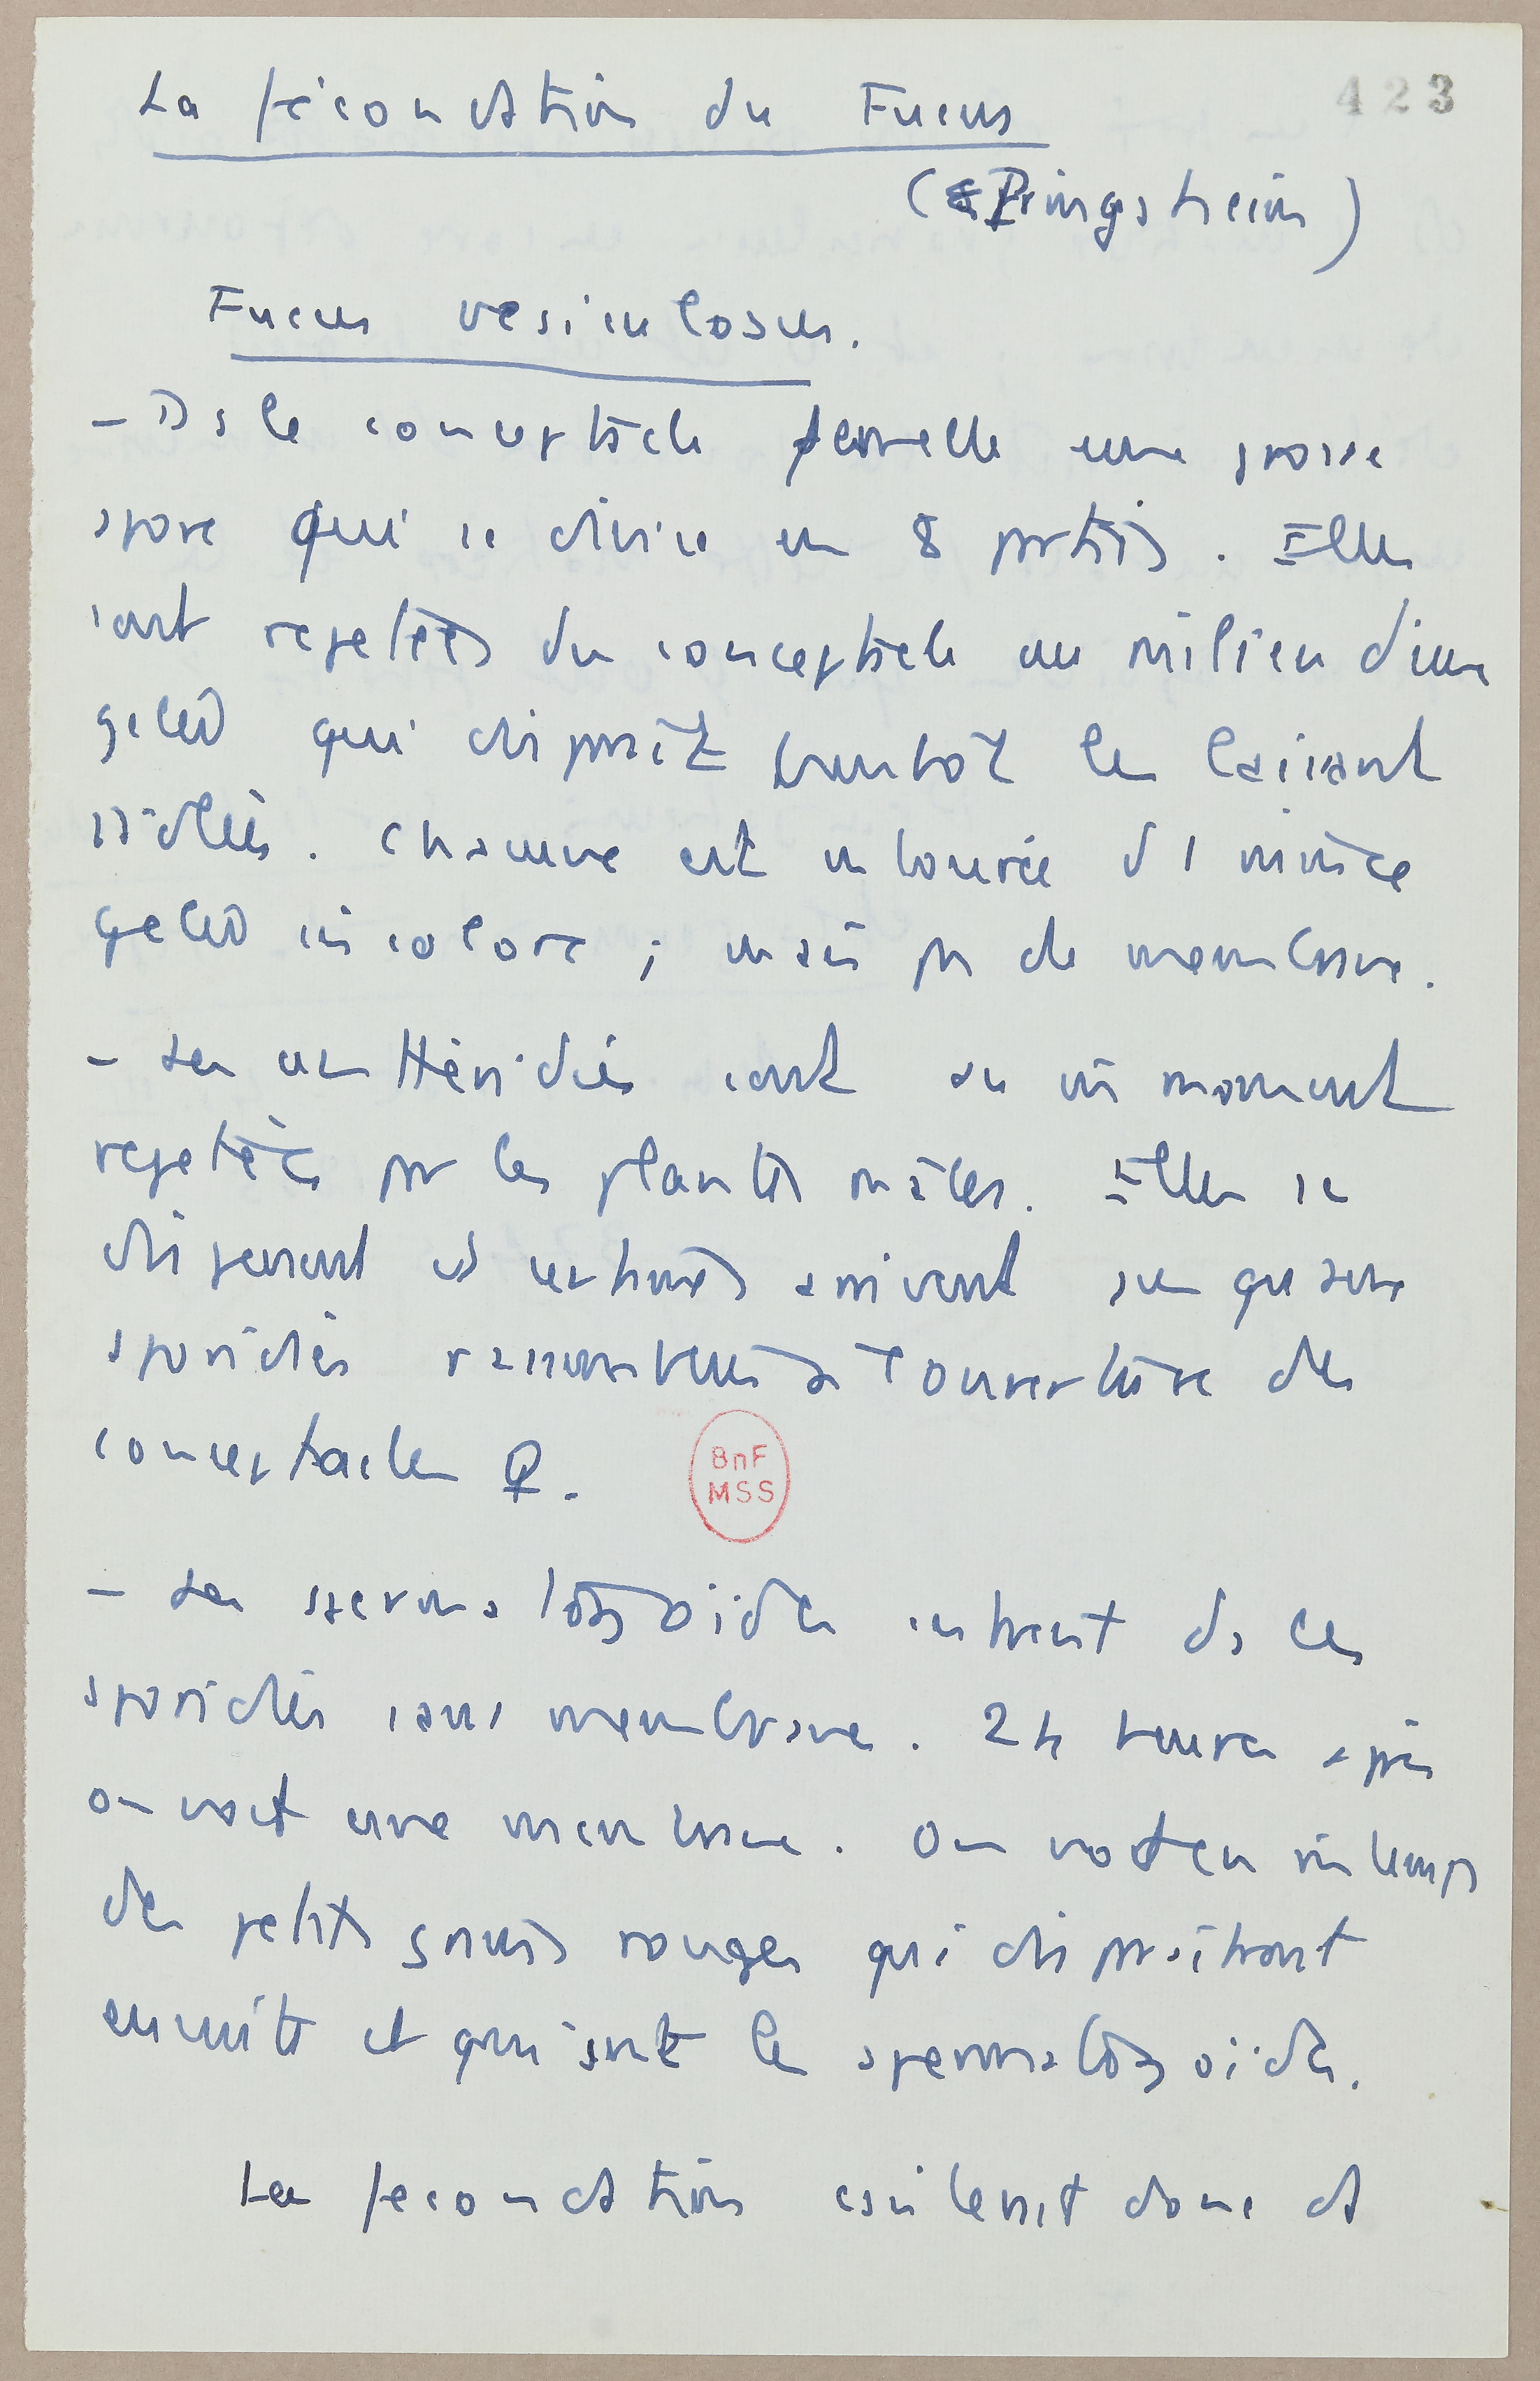 La fécondation du Fucus
423
(Pringsheim)
Fucus vesiculosus.
- Ds le conceptacle femelle une grosse
spore qui se divise en 8 parties. Elles
sont rejetées du conceptacle au milieu d'une
gelée qui disparaît bientôt les laissant
isolées. Chacune est entourée d'1 mince
gelée incolore ; mais pas de membrane.
- Les anthéridies sont au m moment
rejetées par les plantes mâles. Elles se
dispersent et certaines arrivent sur
sporidies à l'ouverture des
conceptacles ♀.
BnF
MSS
- Les spermatozoïdes entrent ds les
sporidies sans membrane. 24 heures après
on voit une membrane. On voit en m temps
des petits grains rouges qui disparaîtront
ensuite et qui sont les spermatozoïdes.
La fécondation donc et